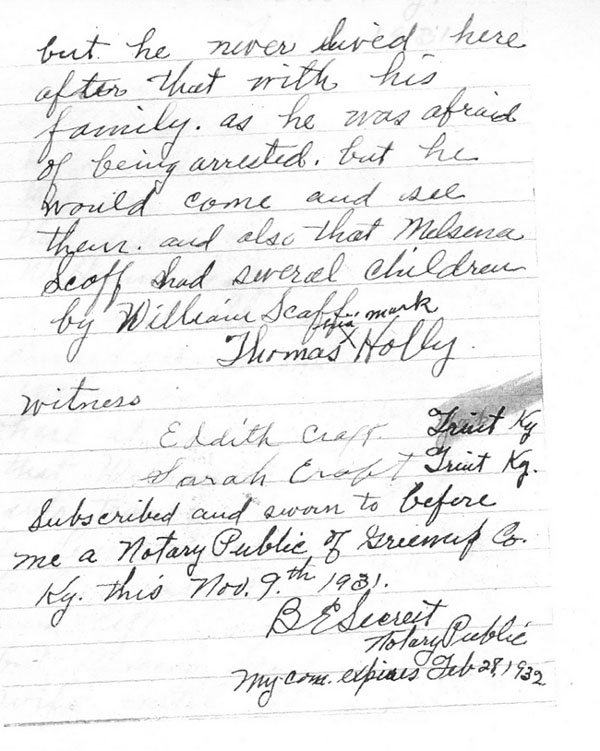 but he never lived here
after that with his
family. as he was afraid
of being arrested. but he
would come and see
them. and also that Melsena
Scoff had several children
by William Scaff
his mark
Thomas X Holly.
Witness
Eddith Craft. Truit Ky
Sarah Craft Truit Ky.
Subscribed and sworn to before
me a Notary Public of Greenup Co.
Ky. this Nov. 9.th 1931.
B E Secrest
Notary Public
My com. expires Feb 28, 1932